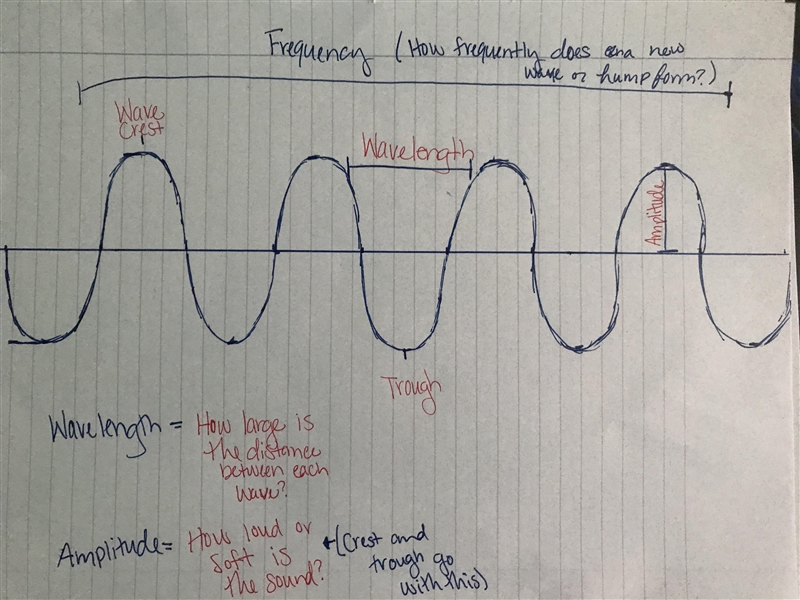 Frequency (How frequently does a new
wave or hump form?)
Wave
Crest
Wavelength
Amplitude
Trough
Wavelength = How large is
the distance
between each
wave?
Amplitude = How loud or
soft is
the sound?
←(Crest and
trough go
with this)